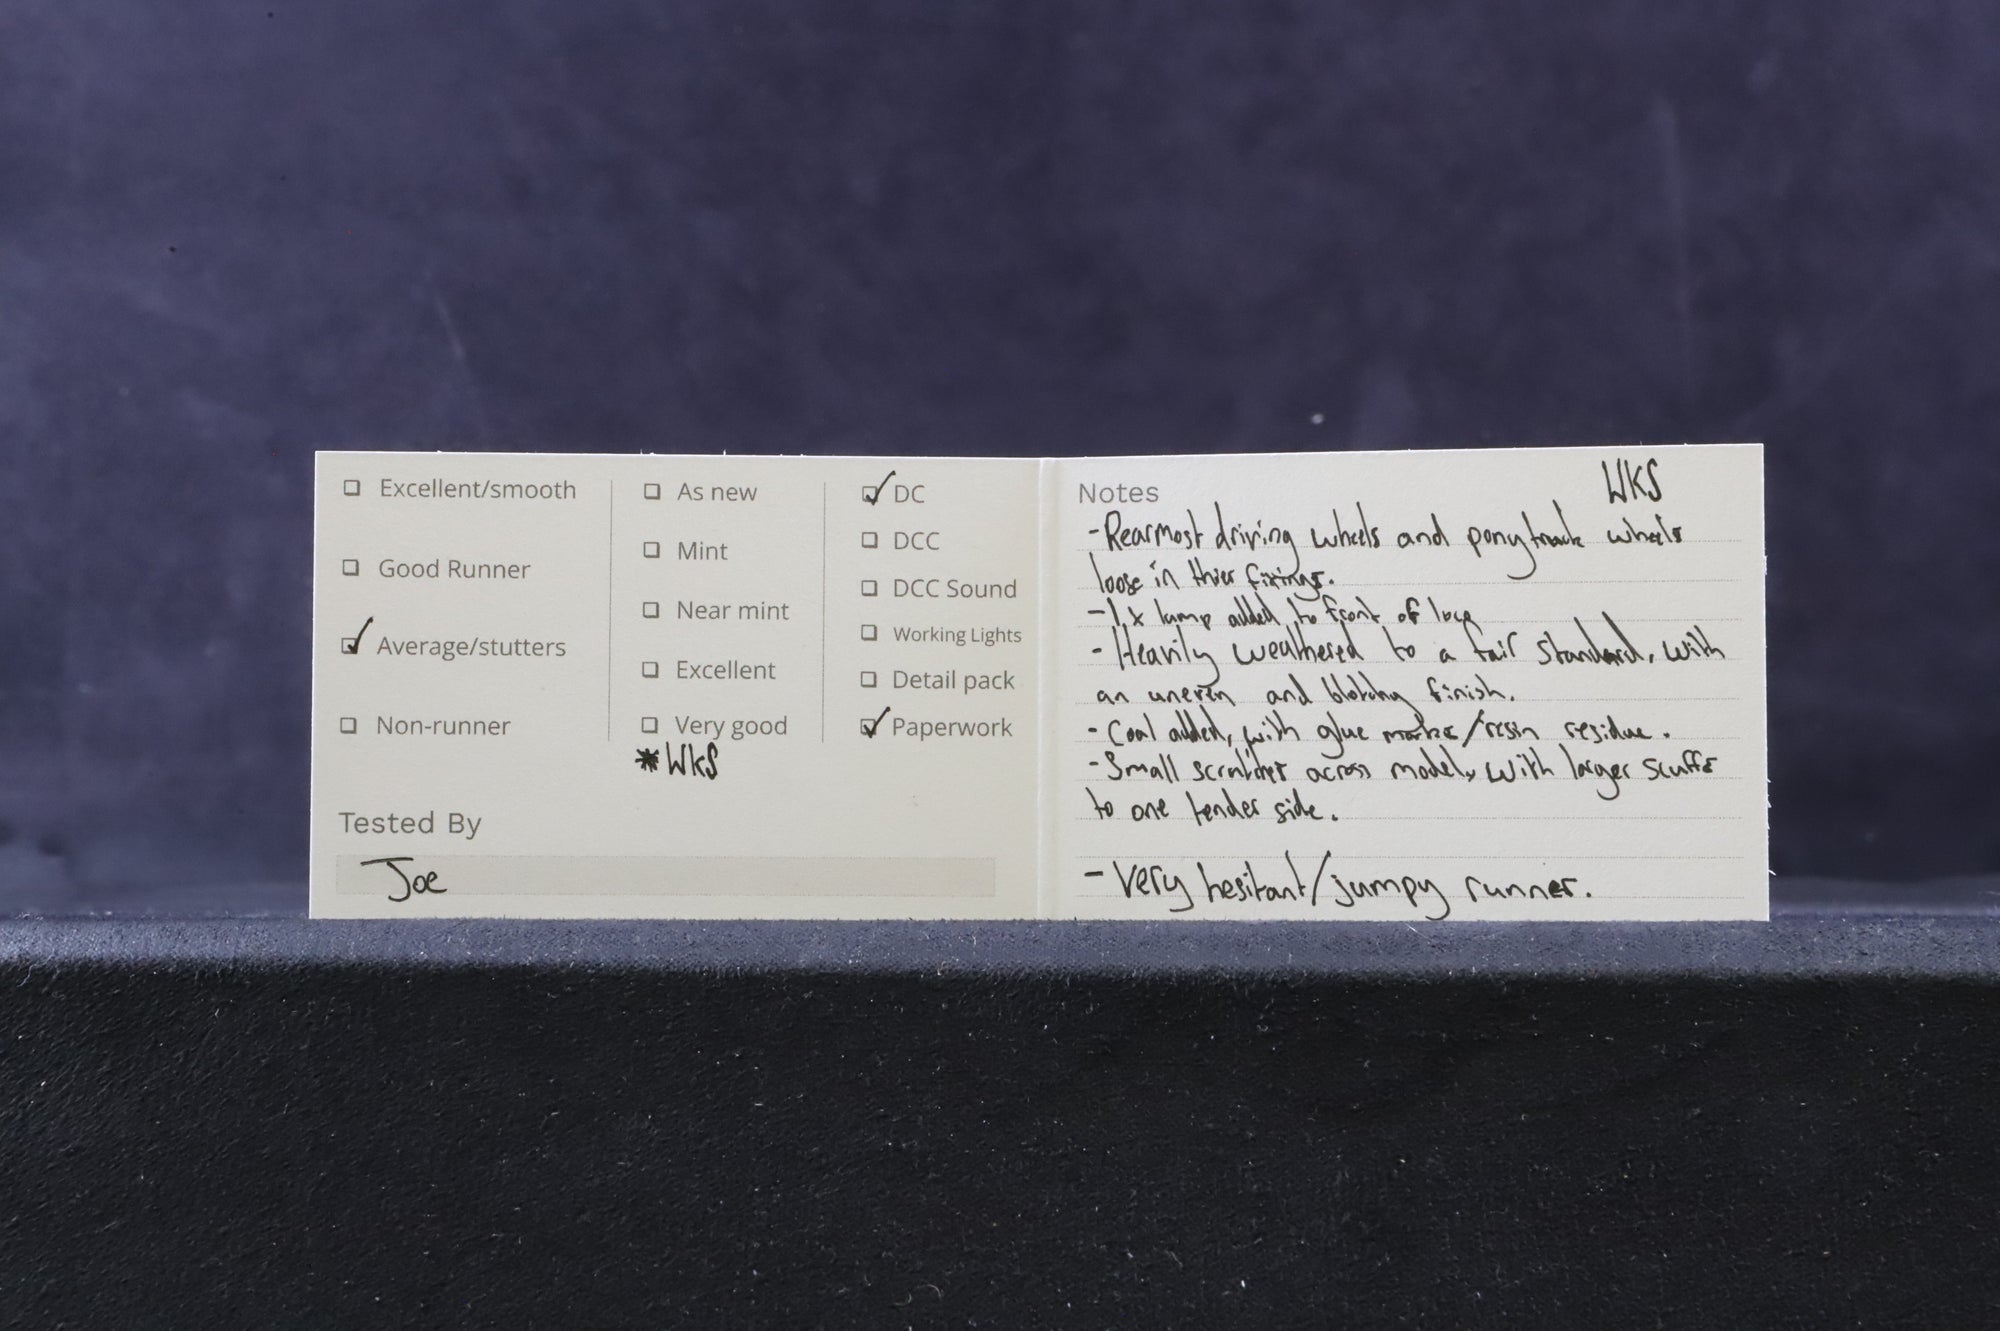 Excellent/smooth
Good Runner
Average/stutters
Non-runner
As new
Mint
Near mint
Excellent
Very good
* WKS
DC
DCC
DCC Sound
Working Lights
Detail pack
Paperwork
Tested By
Joe
Notes
WKS
- Rearmost driving wheels and ponytruck wheels
loose in thier fixings.
- 1 x lamp added to front of loco
- Heavily weathered to a fair standard, with
an uneven and blotchy finish.
- Coal added, with glue marks/resin residue.
- Small scratches across model, with larger scuffs
to one tender side.
- Very hesitant/jumpy runner.